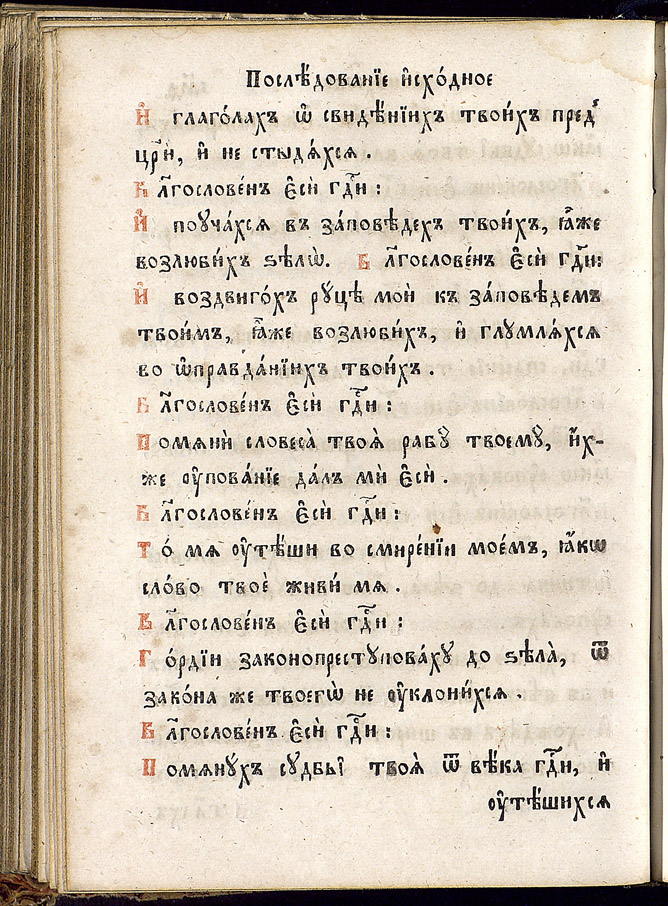 Послѣ́дованїе и҆схо́дное
И҆ глаго́лахъ ѡ҆ свидѣ́нїихъ твои́хъ пред̾
цр҃и, и҆ не стыдѧ́хсѧ .
Бл҃гослове́нъ є҆сѝ гдⷭ҇и :
И҆ поуча́хсѧ въ за́повѣдехъ твои́хъ, ꙗ҆̀же
возлюби́хъ ѕѣлѡ̀. Бл҃гослове́нъ є҆сѝ гдⷭ҇и:
И҆ воздвиго́хъ руцѣ̀ моѝ къ за́повѣдемъ
твои́мъ, ꙗ҆̀же возлюби́хъ, и҆ глумлѧ́хсѧ
во ѡ҆правда́нїихъ твои́хъ .
Бл҃гослове́нъ є҆сѝ гдⷭ҇и :
Помѧнѝ словеса̀ твоѧ̀ рабꙋ̀ твоемꙋ̀, и҆́х-
же ᲂу҆пова́нїе да́лъ мѝ є҆сѝ .
Бл҃гослове́нъ є҆сѝ гдⷭ҇и :
То́ мѧ ᲂу҆тѣ́ши во смире́нїи мое́мъ, ꙗ҆́кѡ
сло́во твоѐ живи́ мѧ .
Бл҃гослове́нъ є҆сѝ гдⷭ҇и :
Го́рдїи законопреступова́хꙋ до ѕѣла̀, ѿ
зако́на же твоегѡ̀ не ᲂу҆клони́хсѧ .
Бл҃гослове́нъ є҆сѝ гдⷭ҇и :
Помѧнухъ судьбы̀ твоѧ̀ ѿ вѣ́ка гдⷭ҇и, и҆
ᲂу҆тѣ́шихсѧ